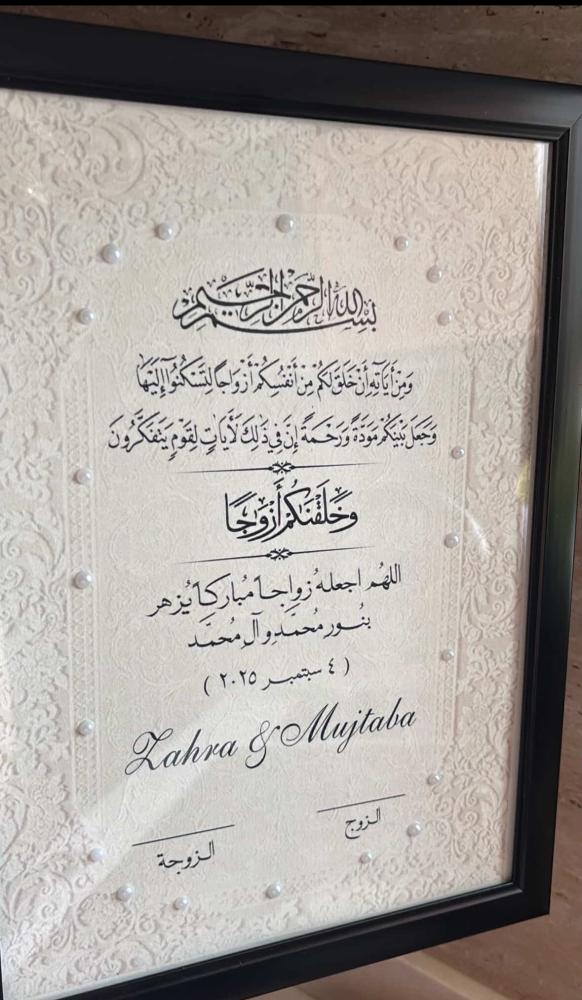 بِسْمِ اللهِ الرَّحْمٰنِ الرَّحِيْمِ
وَمِنْ آيَاتِهِ أَنْ خَلَقَ لَكُمْ مِنْ أَنْفُسِكُمْ أَزْوَاجًا لِتَسْكُنُوا إِلَيْهَا
وَجَعَلَ بَيْنَكُمْ مَوَدَّةً وَرَحْمَةً إِنَّ فِي ذَٰلِكَ لَآيَاتٍ لِقَوْمٍ يَتَفَكَّرُونَ
وَخَلَقْنَاكُمْ أَزْوَاجًا
اللهُم اجعلهُ زواجاً مُباركاً يُزهر
بنُور محُمّد وآلِ محُمّد
( ٤ سبتمبر ٢٠٢٥ )
Zahra & Mujtaba
الزوج
الزوجة